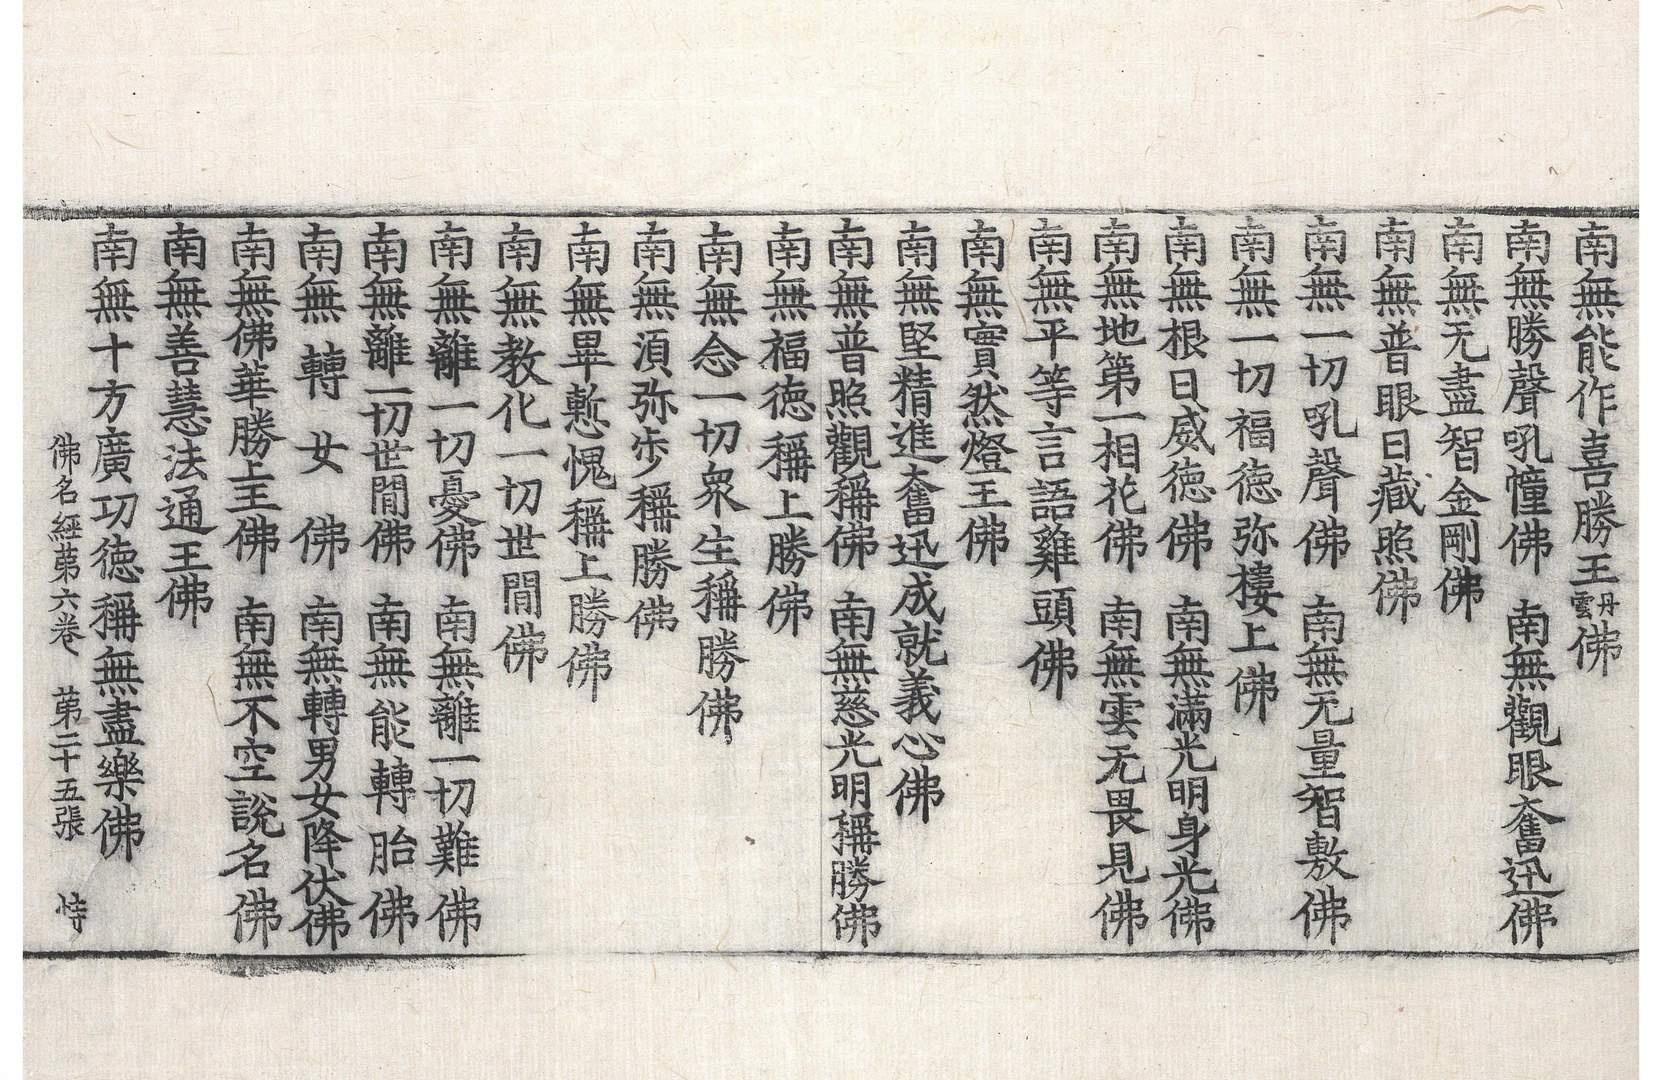 南無能作喜勝王丹雲佛
南無勝聲吼憧佛　南無觀眼奮迅佛
南無无盡智金剛佛
南無普眼日藏照佛
南無一切吼聲佛　南無无量智敷佛
南無一切福德弥樓上佛
南無根日威德佛　南無滿光明身光佛
南無地第一相花佛　南無雲无畏見佛
南無平等言語雞頭佛
南無實然燈王佛
南無堅精進奮迅成就義心佛
南無普照觀稱佛　南無慈光明稱勝佛
南無福德稱上勝佛
南無念一切衆生稱勝佛
南無湏弥步稱勝佛
南無畢慙愧稱上勝佛
南無教化一切世間佛
南無離一切憂佛　南無離一切難佛
南無離一切世間佛　南無能轉胎佛
南無轉女佛　南無轉男女降伏佛
南無佛華勝上王佛　南無不空說名佛
南無善慧法通王佛
南無十方廣功德稱無盡樂佛
佛名經第六卷　第二十五張　恃